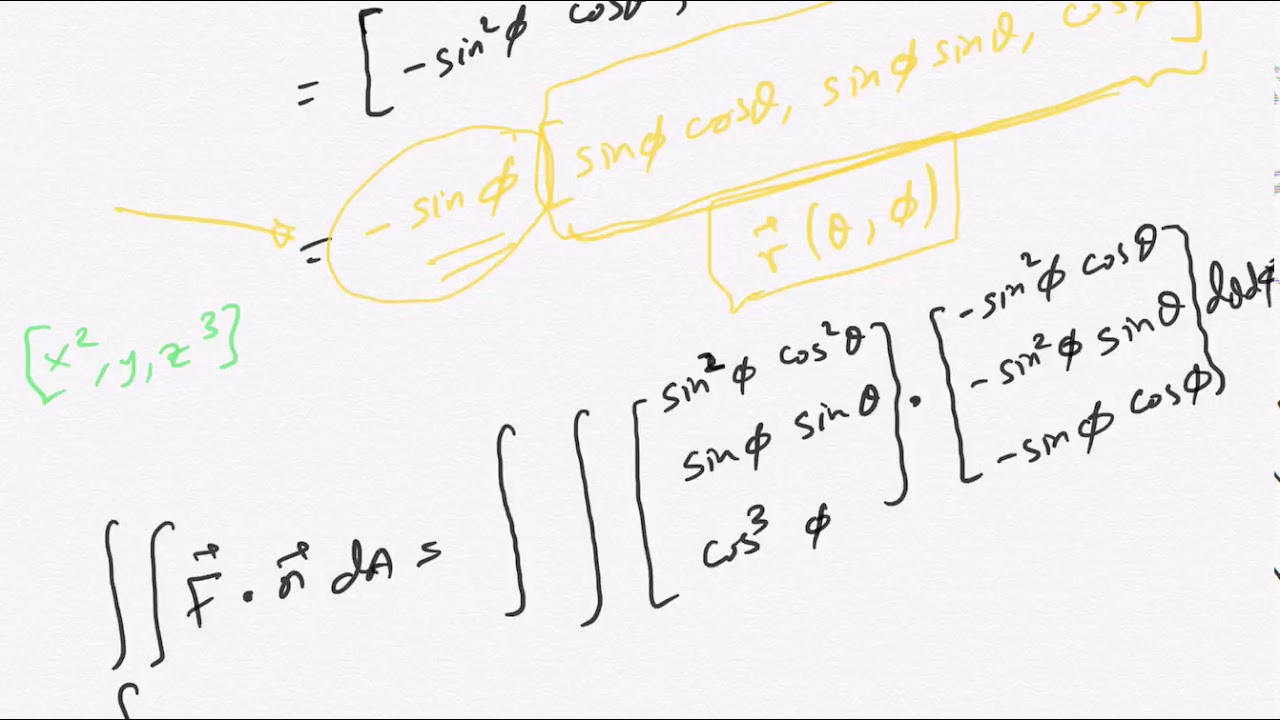 = [-sin²φ cosθ,
= -sinφ [sinφ cosθ, sinφ sinθ, cosφ]
r⃗(θ, φ)
[x², y, z³]
∬ F⃗ · n⃗ dA = ∬ [sin²φ cos²θ
sinφ sinθ
cos³ φ] · [-sin²φ cosθ
-sin²φ sinθ
-sinφ cosφ] dθdφ